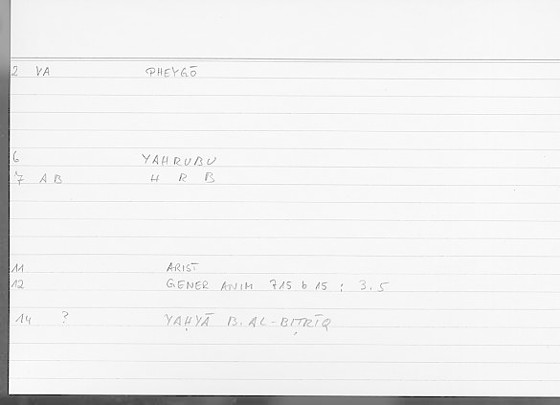 2 VA PHEYGŌ
6 YAHRUBU
7 AB H R B
11 ARIST
12 GENER ANIM 715 b 15 : 3.5
14 ? YAḤYĀ B. AL-BIṬRĪQ